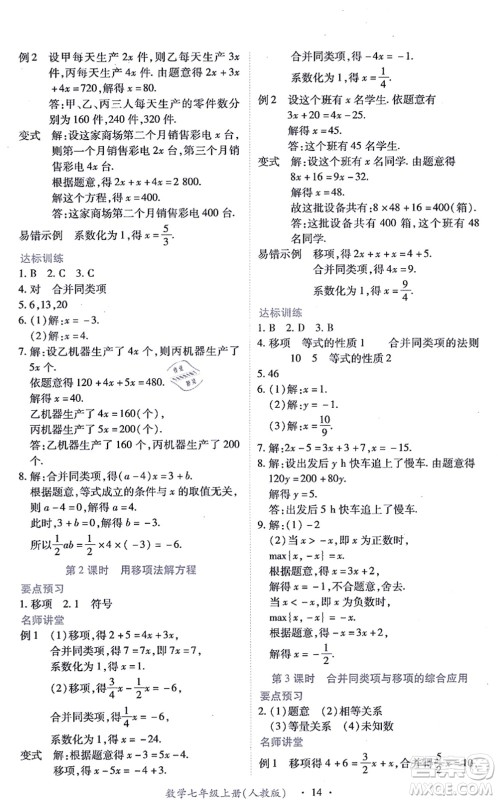 例2 设甲每天生产 2x 件，则乙每天生产 3x
件，丙每天生产 4x 件．由题意得 2x＋3x
＋4x＝720，解得 x＝80．
答：甲、乙、丙三人每天生产的零件数分
别为 160 件，240 件，320 件．
变式 解：设这家商场第二个月销售彩电 x 台，
则第一个月销售彩电 2x 台，第三个月
销售彩电 4x 台．
根据题意，得 2x＋x＋4x＝2 800，
解这个方程，得 x＝400．
答：这家商场第二个月销售彩电 400 台．
易错示例 系数化为 1，得 x＝5/3．
达标训练
1. B 2. C 3. C
4. 对 合并同类项
5. 6,13,20
6. (1)解：x＝－3．
(2)解：x＝4．
7. 解：设乙机器生产了 4x 个，则丙机器生产了
5x 个．
依题意得 120＋4x＋5x＝480．
解得 x＝40．
乙机器生产了 4x＝160(个)，
丙机器生产了 5x＝200(个)．
答：乙机器生产了 160 个，丙机器生产了
200 个．
8. 解：合并同类项，得(a－4)x＝b＋3．
根据题意，等式成立的条件与 x 的取值无关，
则 a－4＝0，b＋3＝0．
此时，a＝4，b＝－3．
所以 1/2 ab＝1/2×4×(－3)＝－6．
第 2 课时 用移项法解方程
要点预习
1. 移项 2. 1 符号
名师讲堂
例1 (1)移项，得 2＋5＝4x＋3x，
合并同类项，得 7＝7x．
系数化为 1，得 x＝1．
(2)移项，得 1/4 x－1/2 x＝3．
合并同类项，得－1/4 x＝3．
系数化为 1，得 x＝－12．
变式 解：移项，得－7x＋3x＝－3＋2．
合并同类项，得－4x＝－1．
系数化为 1，得 x＝1/4．
例2 设这个班有 x 名学生．依题意有
3x＋20＝4x－25．
解得 x＝45．
答：这个班有 45 名学生．
变式 解：设这个班有 x 名同学．由题意得
8x＋16＝9x－32，
解得 x＝48．
故这批设备共有：8×48＋16＝400(箱)．
答：这批设备共有 400 箱，这个班有 48
名同学．
易错示例 移项，得 5x－x＝4＋5．
合并同类项，得 4x＝9．
系数化为 1，得 x＝9/4．
达标训练
1. B 2. B 3. A
4. 移项 等式的性质 1 合并同类项的法则
10 5 等式的性质 2
5. 46
6. (1)解：x＝1．
(2)解：x＝10/9．
7. 解：2x－5＝3x＋3，x＝－8．
8. 解：设出发后 y h 快车追上了慢车．由题意得
120y＝200＋80y．
解得 y＝5．
答：出发后 5 h 快车追上了慢车．
9. 解：(1)－2
(2)当 x＞0 时，
max{x，－x}＝x．
根据题意，得 x＝3x＋2．
解得 x＝－1(舍去)；
当 x＜0 时，
max{x，－x}＝－x．
根据题意，得－x＝3x＋2．
第 3 课时 合并同类项与移项的综合应用
要点预习
2. (1)题意 (2)相等关系
(3)等量关系 (4)未知数
名师讲堂
例1 移项得 4＋6＝3/2 x＋x．
数学七年级上册(人教版) · 14 ·